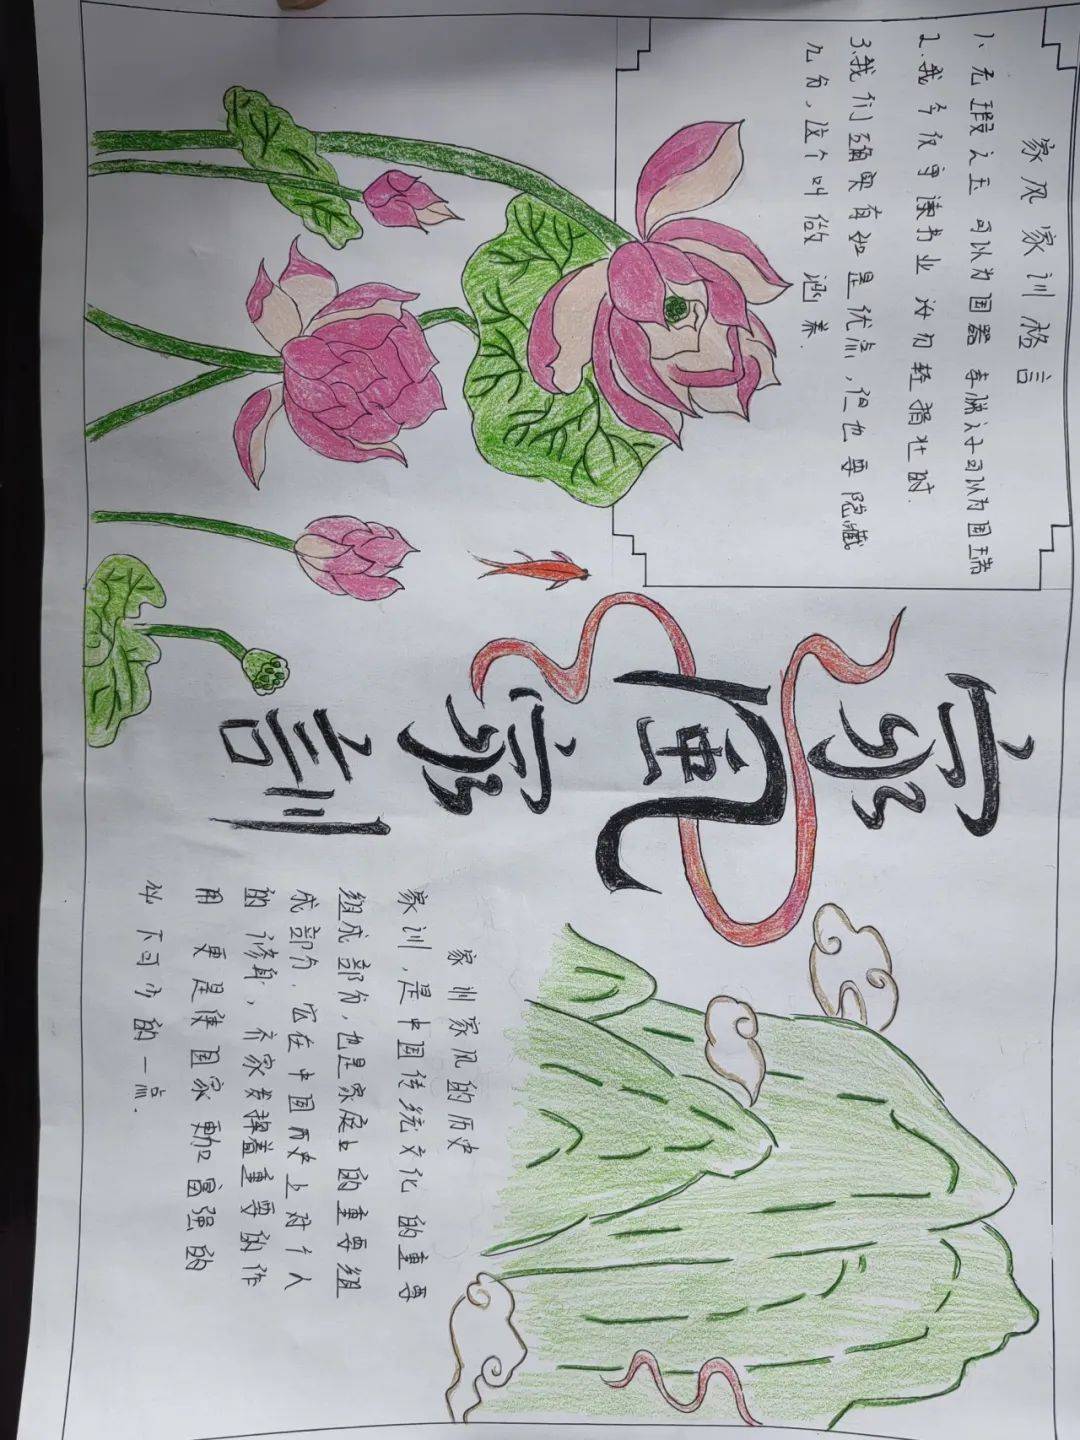 家风家训格言
1、无瑕之玉 可以为国器 孝悌之子可以为国瑞
2、我今仅守读书业 汝勿轻捐壮时
3.我们确实有如是优点,但也要隐藏
几分,这个叫做 涵养.
家風家訓
家训家风的历史
家训,是中国传统文化的重要
组成部份,也是家庭上的重要组
成部分.它在中国历史上对个人
的修身,齐家发挥着重要的作
用 更是使国家 加富强的
必下可少的一点.